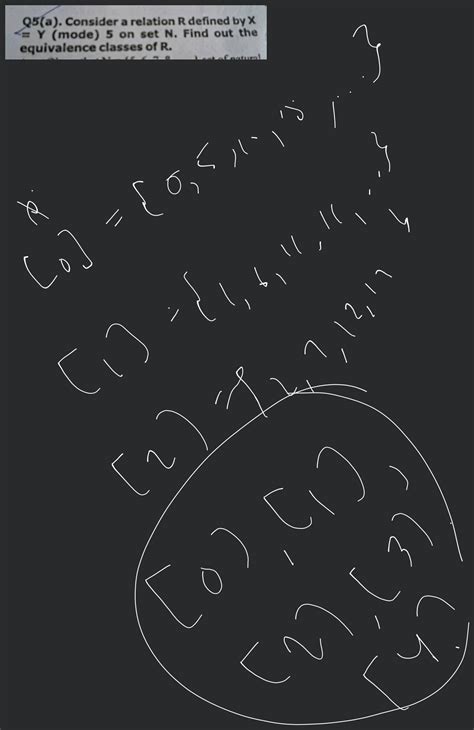 Q5(a). Consider a relation R defined by X
= Y (mode) 5 on set N. Find out the
equivalence classes of R.
[0] = {0, 5, 10, 15, ... }
[1] = {1, 6, 11, 16, . }
[2] = { 2, 7, 12, 17
[0], [1],
[2], [3]
[4]